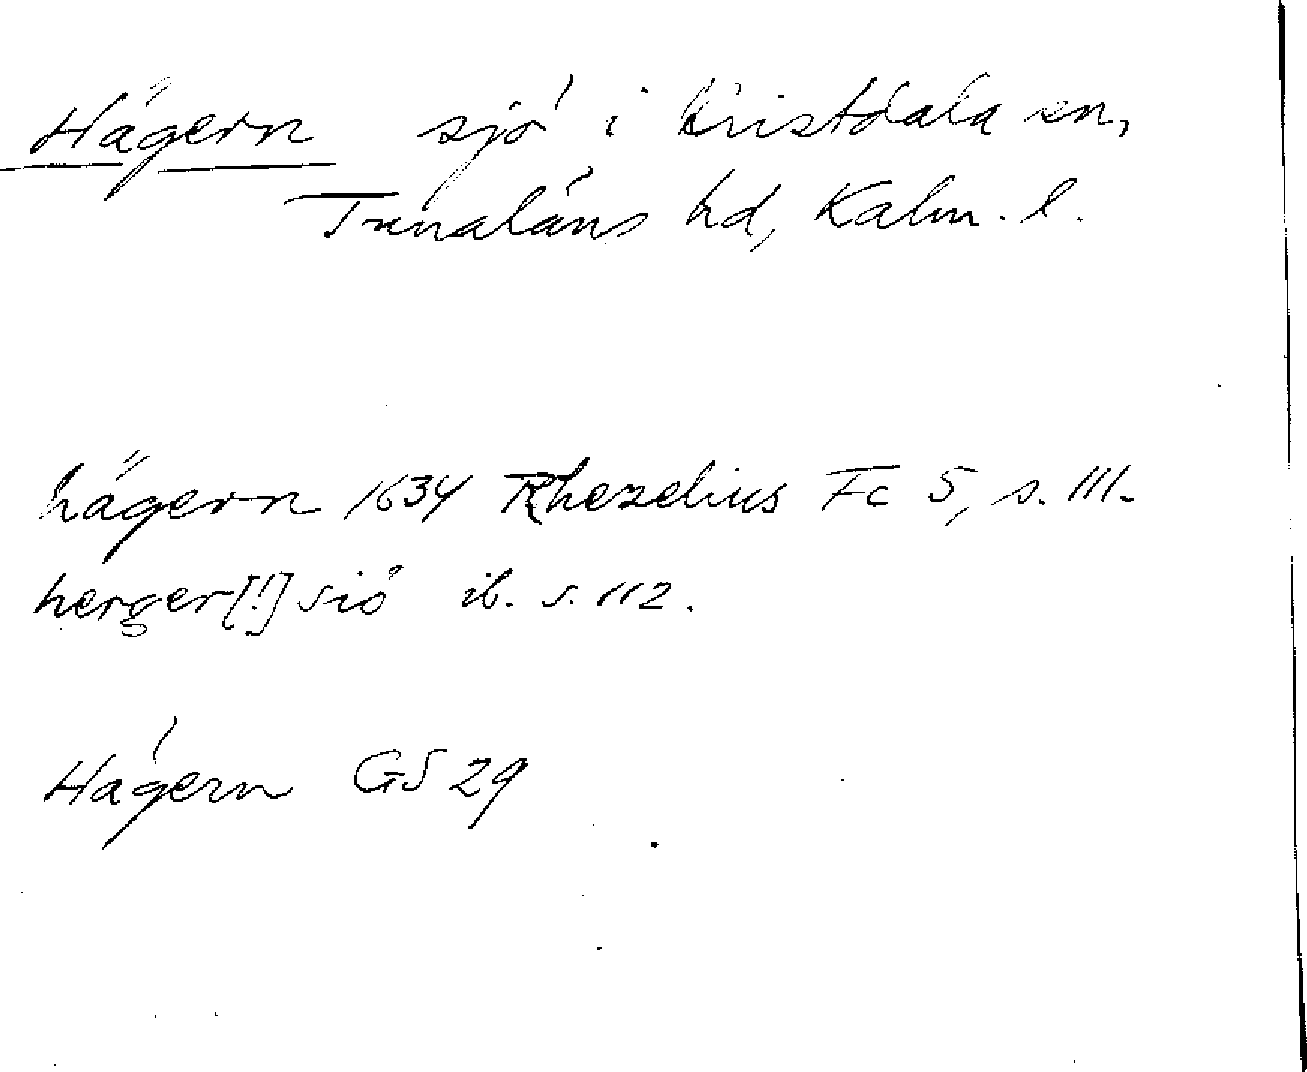 Hägern sjö i Kristdala sn,
Tunaläns hd, Kalm. l.
hägern 1634 Rhezelius Fc 5, s. 111.
herger[!] siö ib. s. 112.
Hägern GS 29